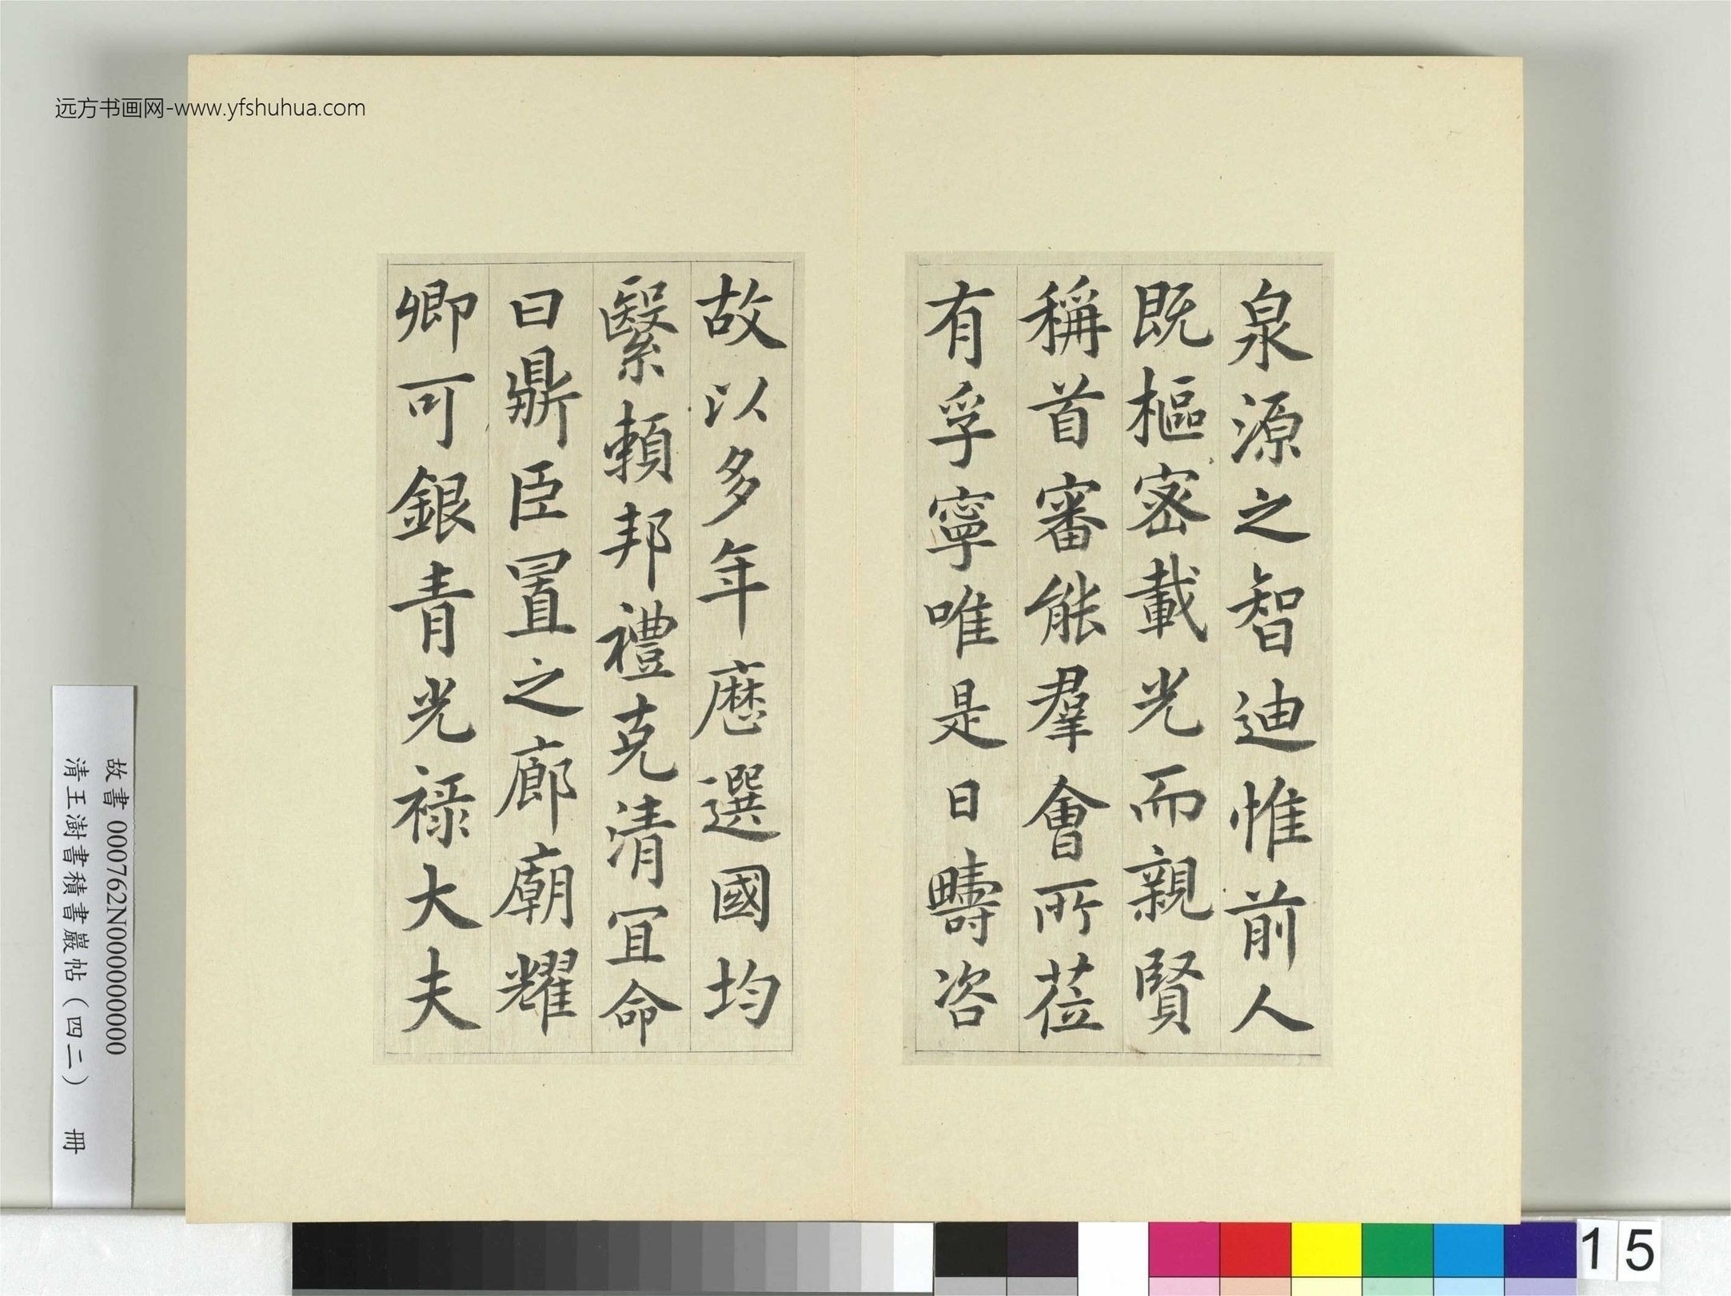 远方书画网-www.yfshuhua.com
泉源之智迪惟前人
既樞密載光而親賢
稱首審能羣會所莅
有孚寧唯是日疇咨
故以多年歷選國均
繄賴邦禮克清宜命
曰鼎臣置之廊廟耀
卿可銀青光祿大夫
故書 000762N000000000
清王澍書積書巖帖（四二） 冊
15